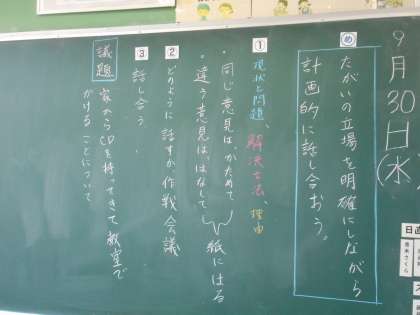 9月30日(水
め たがいの立場を明確にしながら
計画的に話し合おう。
① 現状と問題、解決方法、理由
・同じ意見は、かためて、
・違う意見は、はなして、
紙にはる
② どのように話すか、作戦会議
③ 話し合う
議題 家からCDを持ってきて教室で
かけることについて
日直